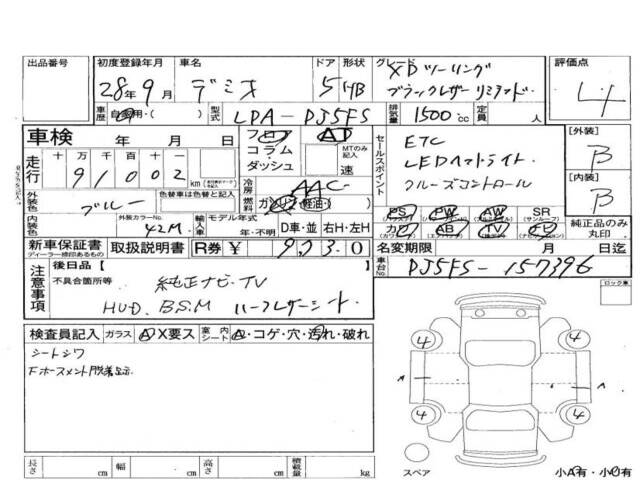 出品番号
初度登録年月
28年9月
車名
デミオ
ドア 形状
5 HB
グレード
XDツーリング
ブラックレザーリミテッド.
評価点
4
車歴 自家用・( )
型式
LDA-DJ5FS
排気量 1500 cc
定員 人
車検 年 月 日
シフト
フロア
コラム
ダッシュ
AT
MTのみ記入
速
走行
十 万 千 百 十 一
91002 km
セールスポイント
ETC
LEDヘッドライト.
クルーズコントロール
[外装]
B
[内装]
B
外装色
ブルー
色替車は色替と記入
冷房
AAC
燃料
ガソリン・軽油・( )
内装色
外装カラーNo.
42M
輸入車
モデル年式
年・不明
D車・並 右H・左H
PS PW AW SR
(サンルーフ)
カワ AB TV ナビ
純正品のみ丸印
新車保証書
ディーラー捺印あるもの
取扱説明書
R券 ¥ 9730
名変期限 月 日迄
車台No.
DJ5FS-157396
注意事項
後日品 [ ]
不具合箇所等
純正ナビ.TV
HUD. BSM ハーフレザーシート.
ロック車
検査員記入 ガラス A・X要ス 室内シート A・コゲ・穴・汚れ・破れ
シートシワ
4 4
A A
4 4
長さ cm 幅 cm 高さ cm 積載量 kg
スペア
小A有・小U有